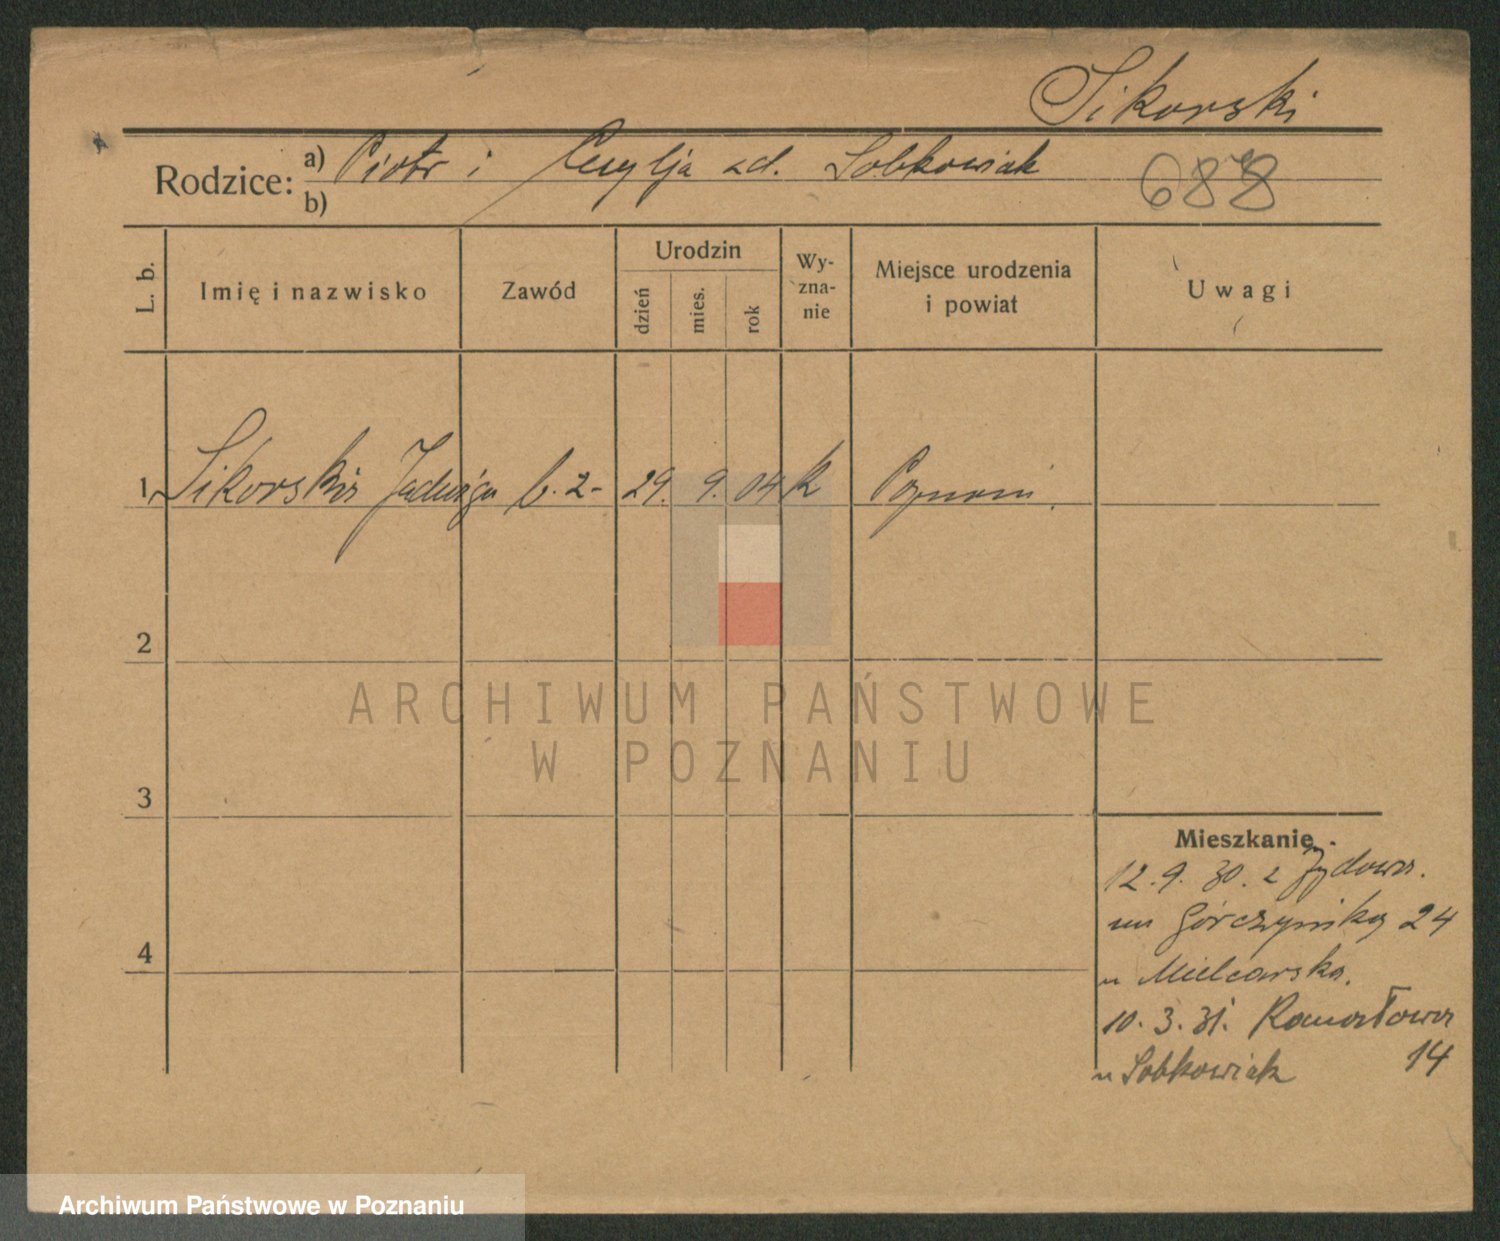 Sikorski
Rodzice: a) Piotr i Cecylja zd. Sobkowiak
b)
688
L. b. Imię i nazwisko Zawód Urodzin dzień mies. rok Wyznanie Miejsce urodzenia i powiat Uwagi
1 Sikorska Jadwiga b. z- 29. 9. 04 k Poznań.
2
ARCHIWUM PAŃSTWOWE
W POZNANIU
3
Mieszkanie
12. 9. 30. z Żydowa.
na Górczyńską 24
u Mielcarska.
10. 3. 31. Romastowa
14
u Sobkowiak
4
Archiwum Państwowe w Poznaniu